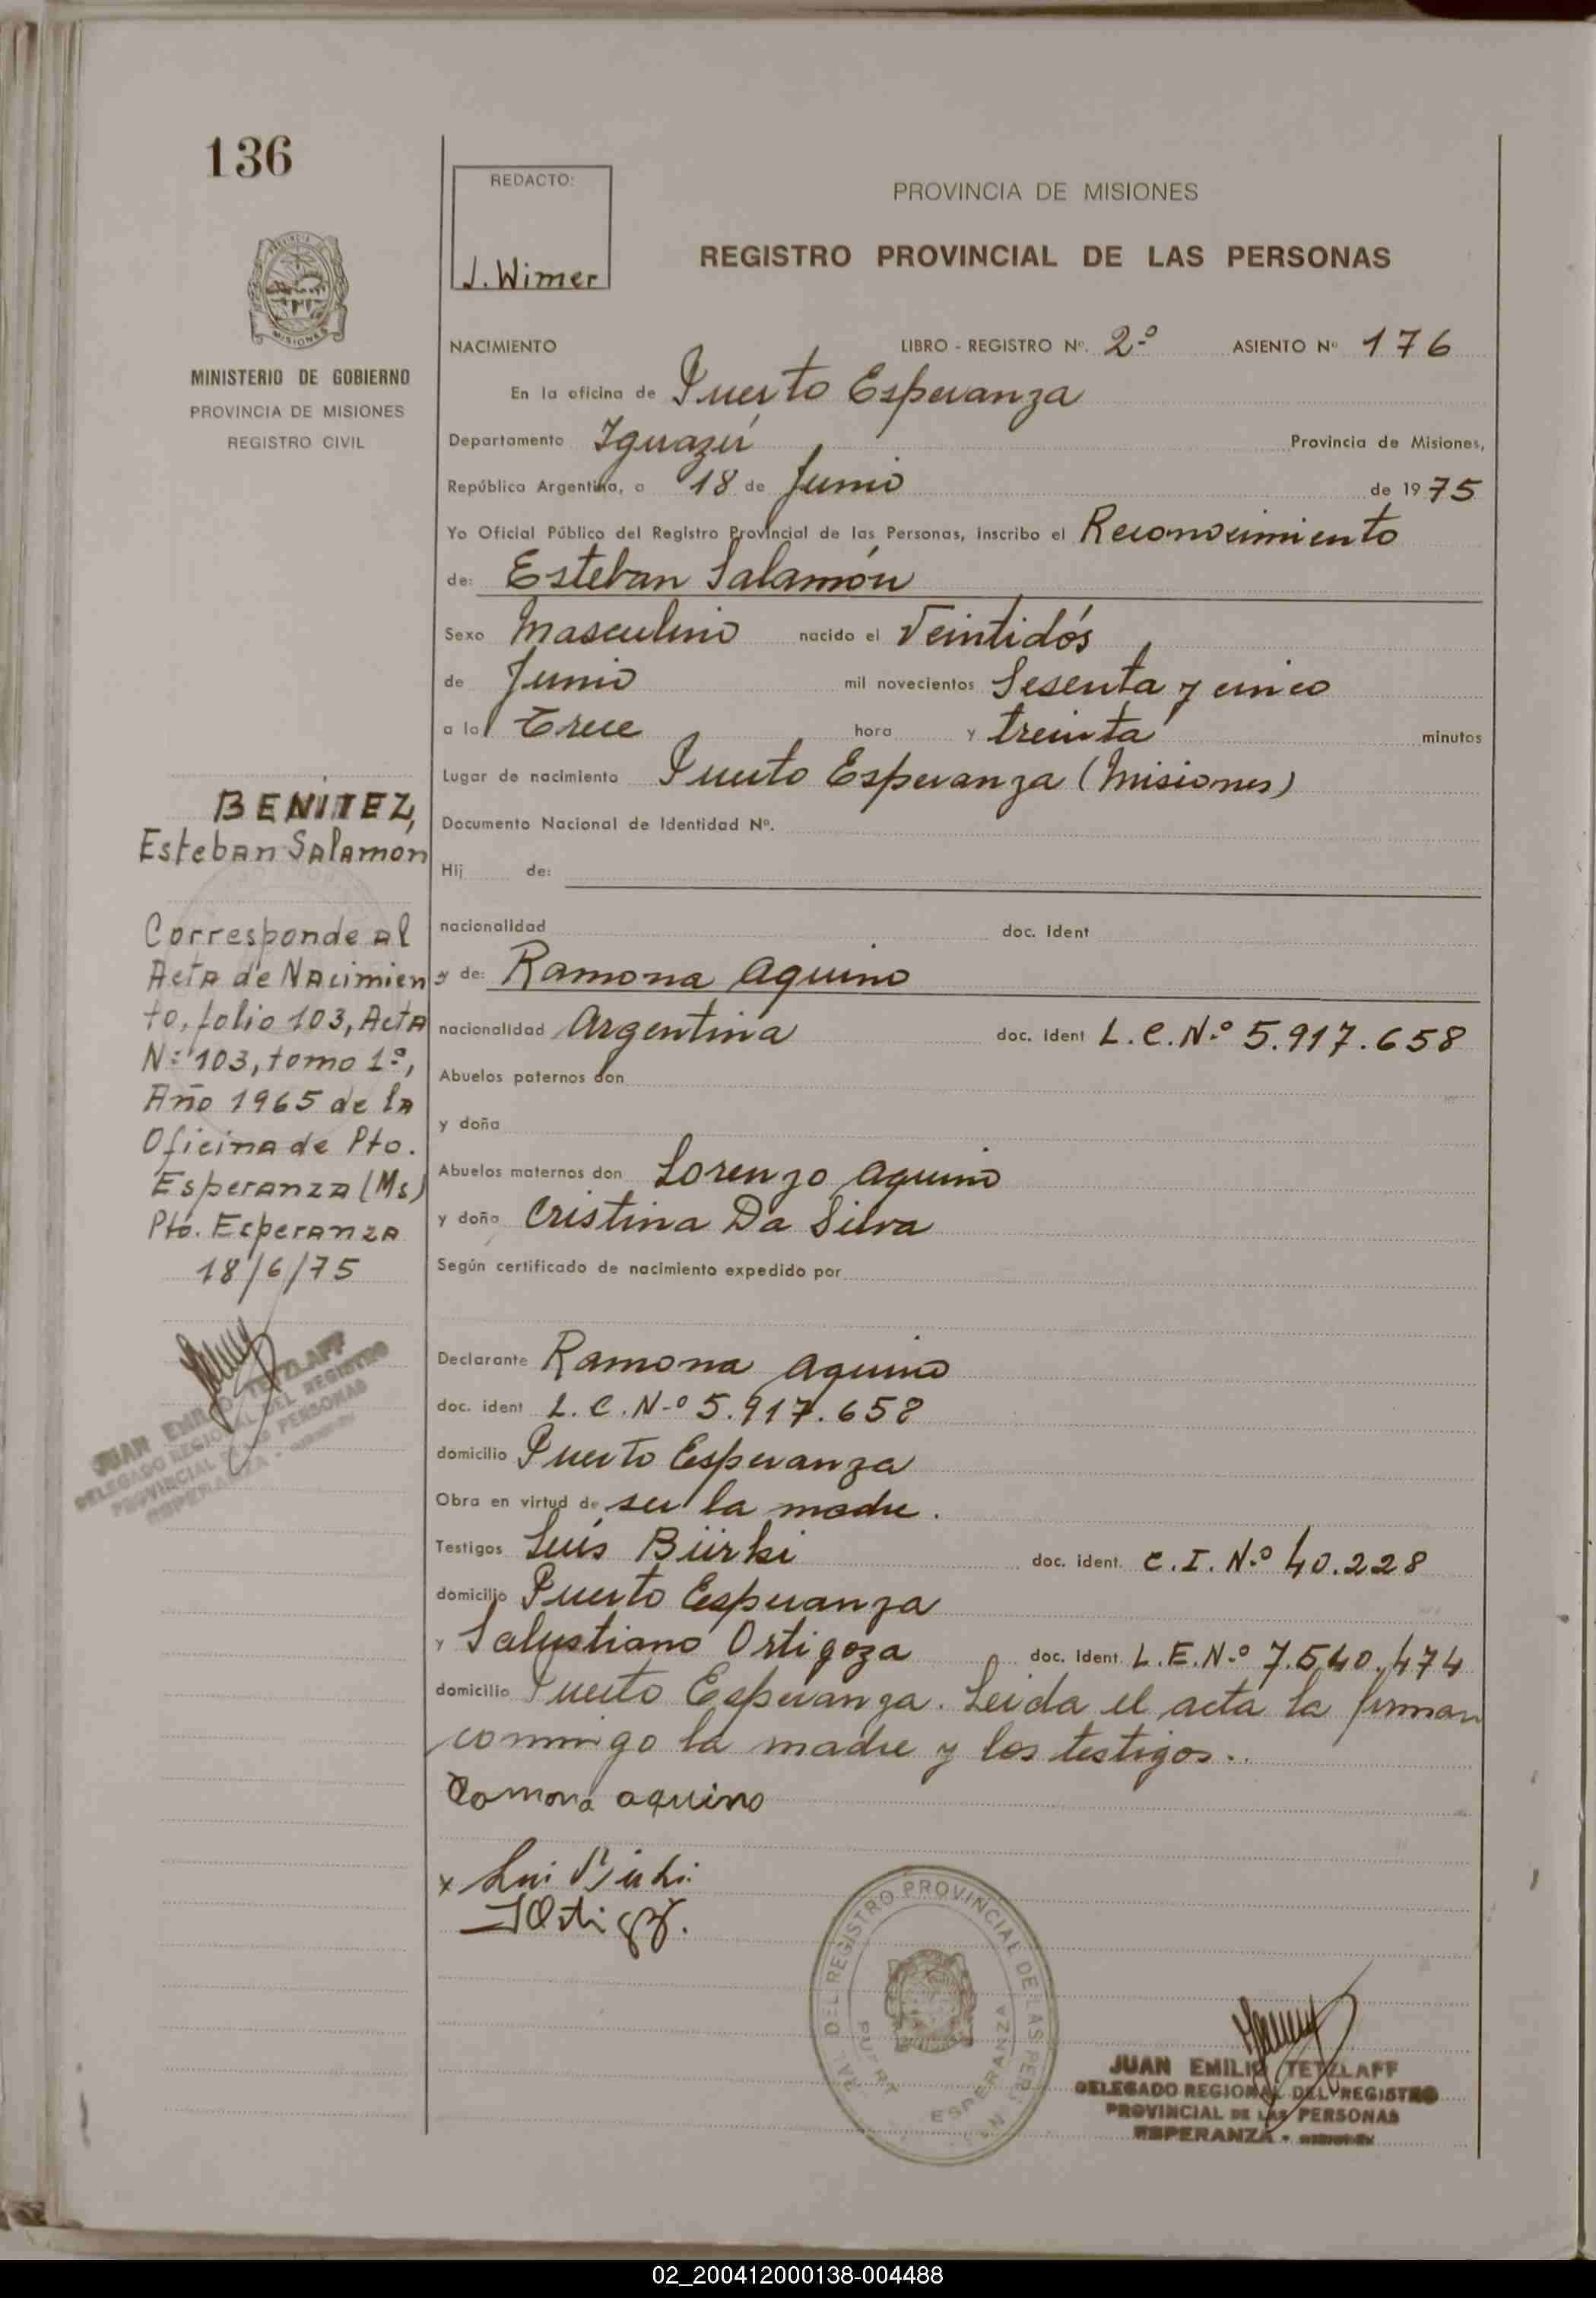 136
REDACTO:
J. Wimer
PROVINCIA DE MISIONES
REGISTRO PROVINCIAL DE LAS PERSONAS
MISIONES
MINISTERIO DE GOBIERNO
PROVINCIA DE MISIONES
REGISTRO CIVIL
NACIMIENTO LIBRO - REGISTRO Nº. 2º ASIENTO Nº 176
En la oficina de Puerto Esperanza
Departamento Iguazú Provincia de Misiones,
República Argentina, a 18 de Junio de 1975
Yo Oficial Público del Registro Provincial de las Personas, inscribo el Reconocimiento
de: Esteban Salamón
Sexo Masculino nacido el Veintidós
de Junio mil novecientos Sesenta y cinco
a la Trece hora y treinta minutos
Lugar de nacimiento Puerto Esperanza (Misiones)
Documento Nacional de Identidad Nº.
Hij de:
nacionalidad doc. ident
y de: Ramona Aquino
nacionalidad Argentina doc. ident L.C.Nº 5.917.658
Abuelos paternos don
y doña
Abuelos maternos don Lorenzo Aquino
y doña Cristina Da Silva
Según certificado de nacimiento expedido por
Declarante Ramona Aquino
doc. ident L.C.Nº 5.917.658
domicilio Puerto Esperanza
Obra en virtud de ser la madre.
Testigos Luis Bürki doc. ident. C.I.Nº 40.228
domicilio Puerto Esperanza
y Salustiano Ortigoza doc. ident. L.E.Nº 7.540.474
domicilio Puerto Esperanza. Leida el acta la firman
conmigo la madre y los testigos.
Ramona aquino
BENITEZ,
Esteban Salamon
Corresponde al
Acta de Nacimien
to, folio 103, Acta
Nº 103, tomo 1º,
Año 1965 de la
Oficina de Pto.
Esperanza (Ms)
Pto. Esperanza
18/6/75
JUAN EMILIO TETZLAFF
DELEGADO REGIONAL DEL REGISTRO
PROVINCIAL DE LAS PERSONAS
ESPERANZA -
DEL REGISTRO PROVINCIAL DE LAS PERS
ESPERANZA
JUAN EMILIO TETZLAFF
DELEGADO REGIONAL DEL REGISTRO
PROVINCIAL DE LAS PERSONAS
ESPERANZA -
02_200412000138-004488